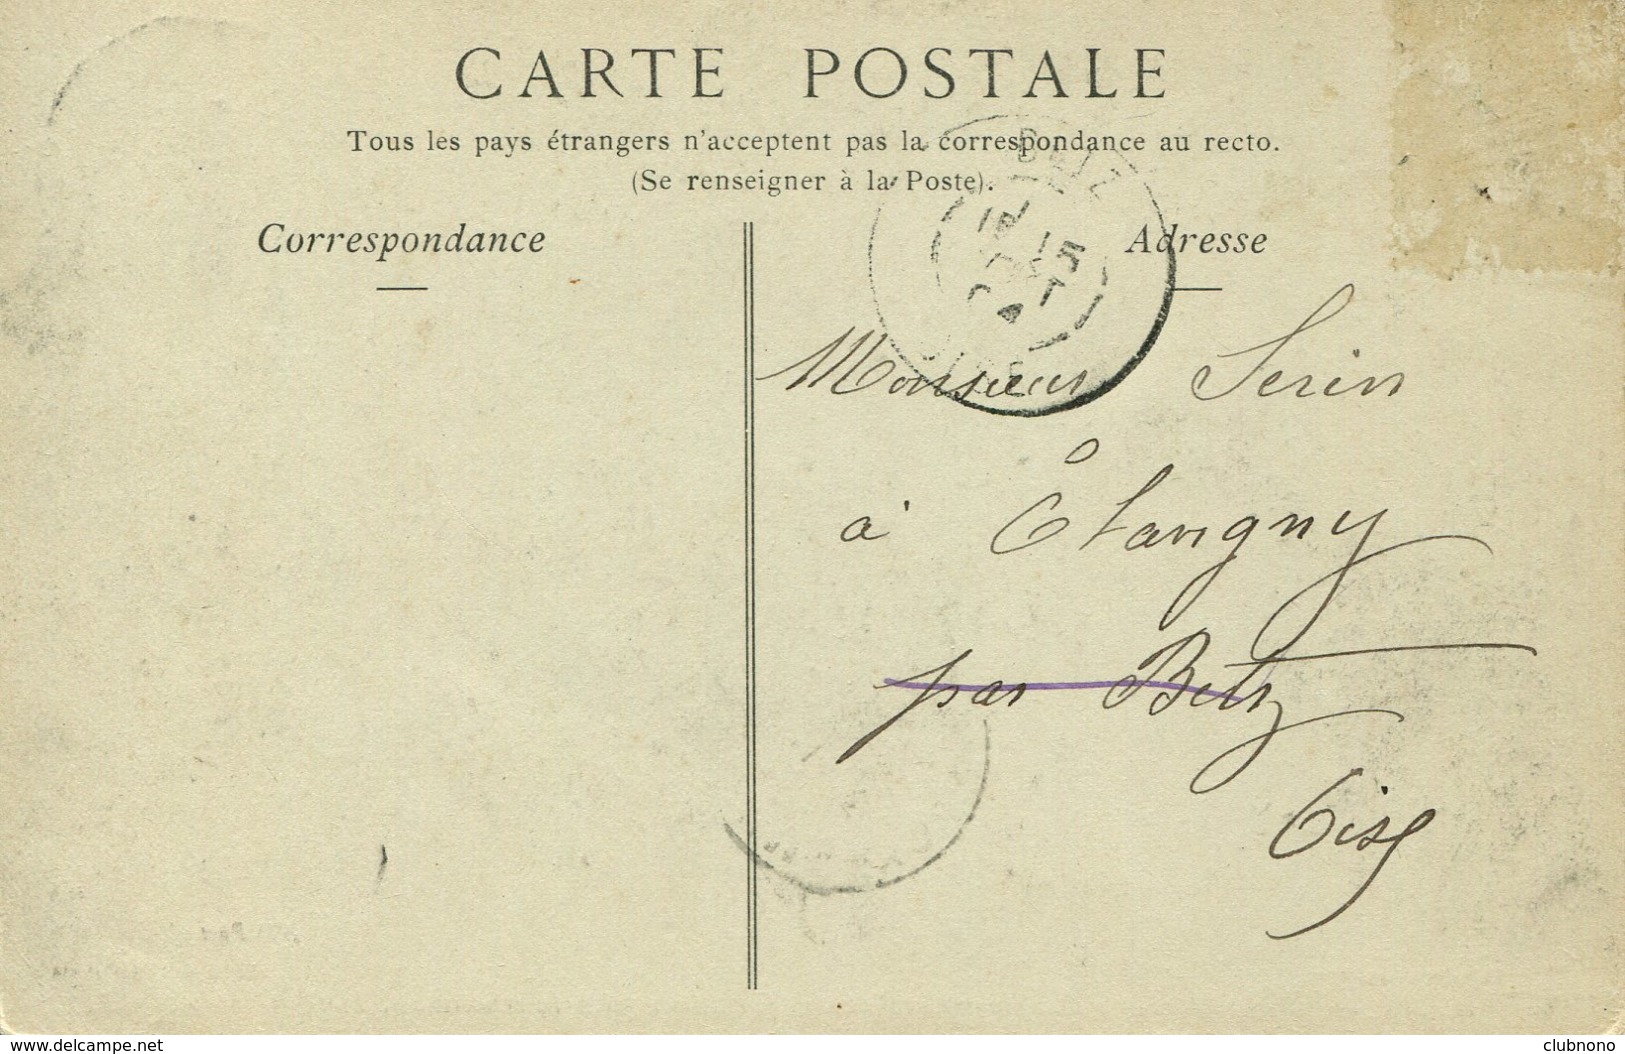 CARTE POSTALE
Tous les pays étrangers n'acceptent pas la correspondance au recto.
(Se renseigner à la Poste).
Correspondance
Adresse
BETZ
15
OISE
Monsieur Serin
à Étavigny
par Betz
Oise
delcampe.net
clubnono